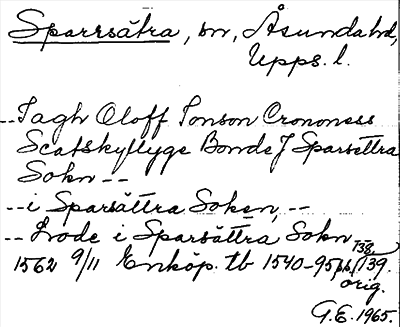 Sparrsätra, sn, Åsundahd,
Upps. l.
--Jagh Oloff Jonson Crononess
Scatskyllyge Bonde J Sparsettra
Sokn --
--i Sparsättra Soken, --
--Lrode i Sparsättra Sokn
1562 9/11 Enköp. tb 1540-95 pb, 138, 139.
orig.
G.E. 1965.